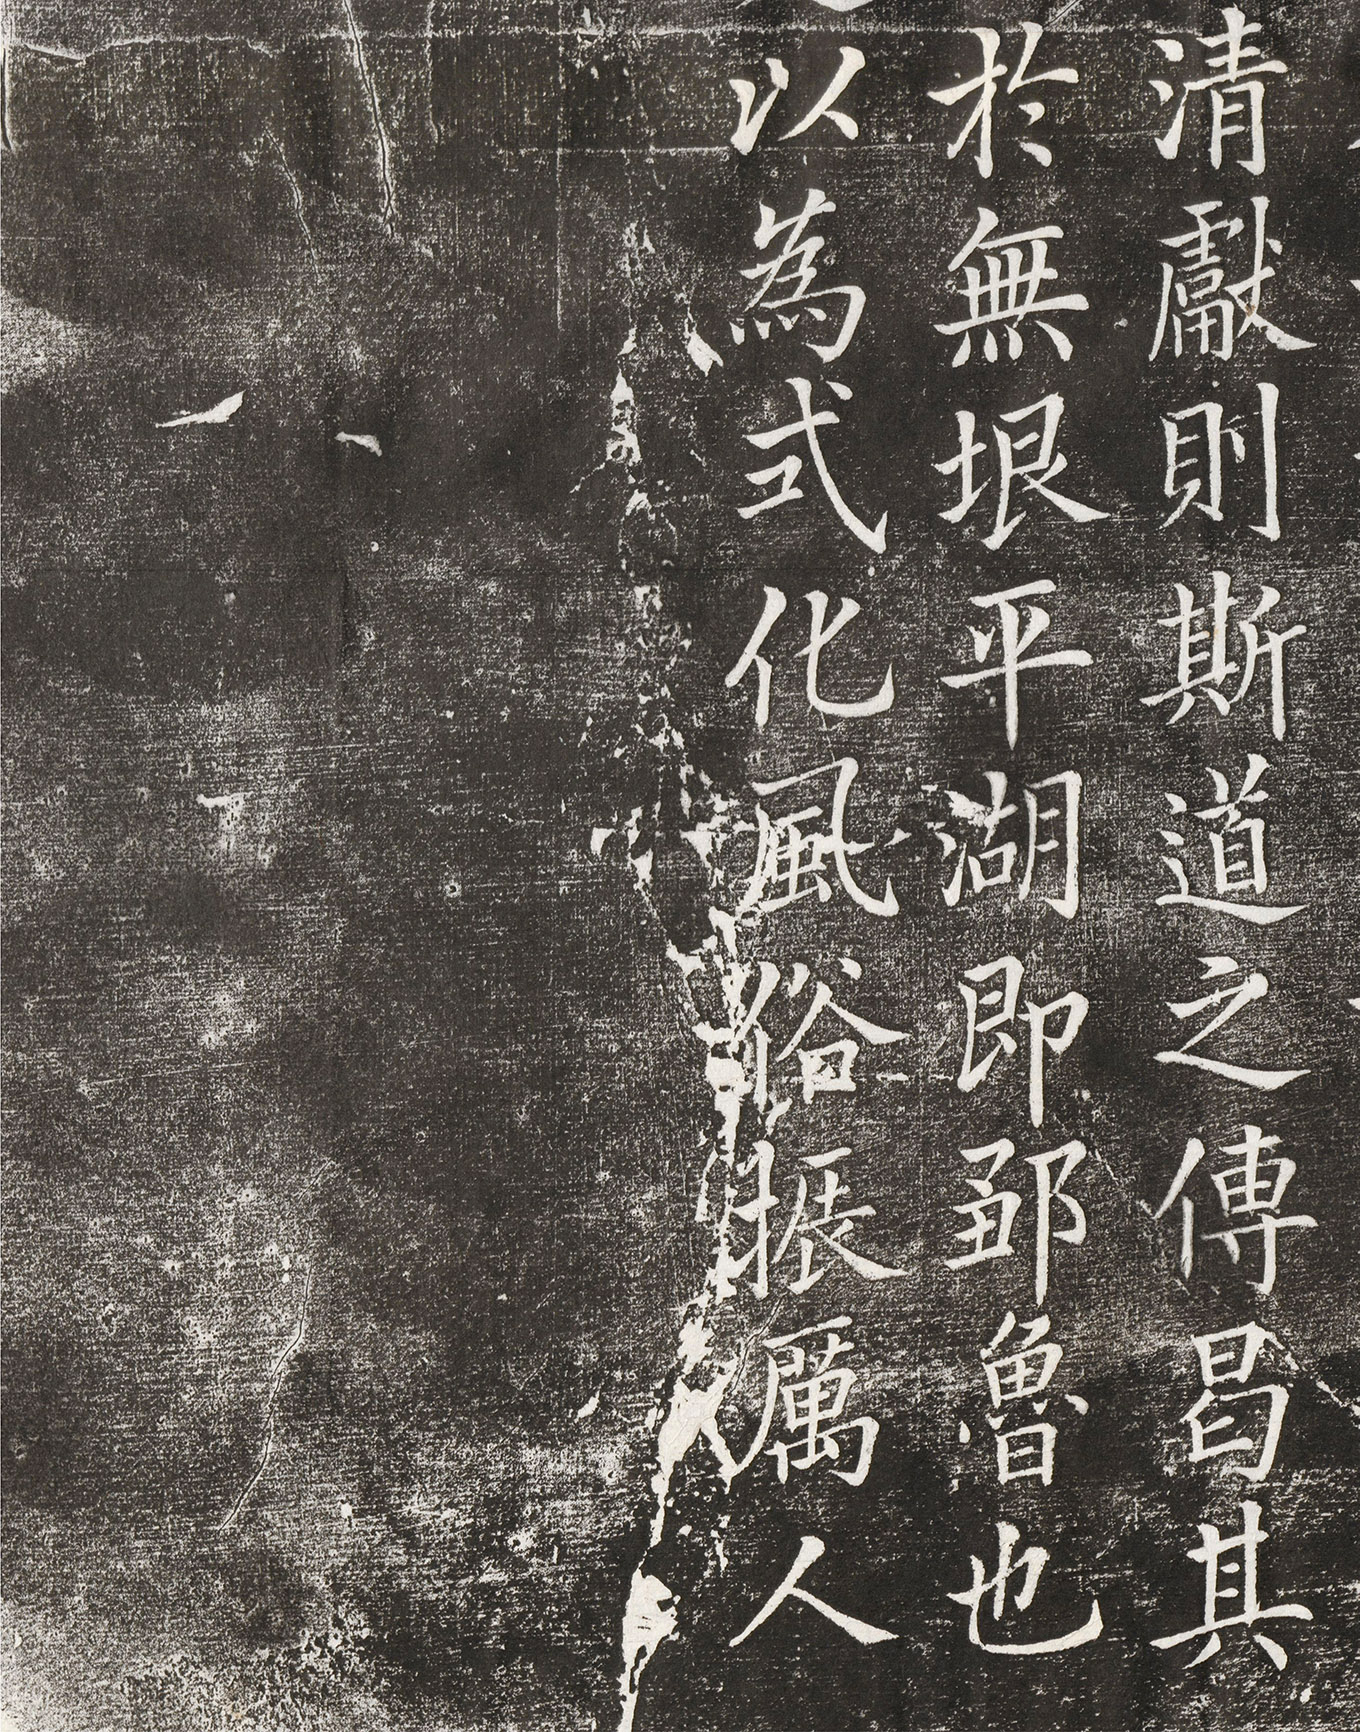 清獻則斯道之傳曷其
於無垠平湖即鄒魯也
以為式化風俗振厲人